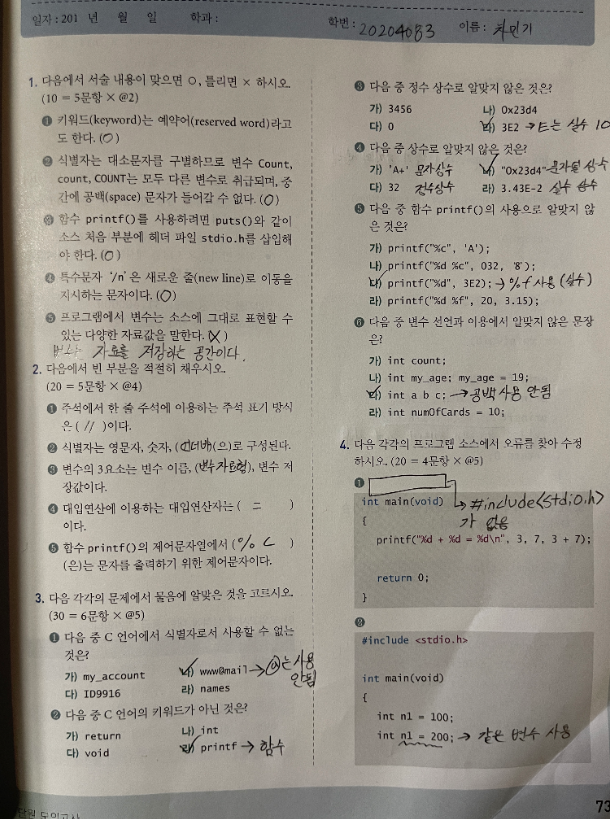 일자 : 201 년 월 일 학과 : 학번 : 20204083 이름 : 차민기
1. 다음에서 서술 내용이 맞으면 O, 틀리면 × 하시오.
(10 = 5문항 × @2)
❶ 키워드(keyword)는 예약어(reserved word)라고
도 한다. (O)
❷ 식별자는 대소문자를 구별하므로 변수 Count,
count, COUNT는 모두 다른 변수로 취급되며, 중
간에 공백(space) 문자가 들어갈 수 없다. (O)
❸ 함수 printf()를 사용하려면 puts()와 같이
소스 처음 부분에 헤더 파일 stdio.h를 삽입해
야 한다. (O)
❹ 특수문자 '/n'은 새로운 줄(new line)로 이동을
지시하는 문자이다. (O)
❺ 프로그램에서 변수는 소스에 그대로 표현할 수
있는 다양한 자료값을 말한다. (X)
변수는 자료를 저장하는 공간이다.
2. 다음에서 빈 부분을 적절히 채우시오.
(20 = 5문항 × @4)
❶ 주석에서 한 줄 주석에 이용하는 주석 표기 방식
은 ( // )이다.
❷ 식별자는 영문자, 숫자, (언더바)(으)로 구성된다.
❸ 변수의 3요소는 변수 이름, (변수자료형), 변수 저
장값이다.
❹ 대입연산에 이용하는 대입연산자는 ( = )
이다.
❺ 함수 printf()의 제어문자열에서 ( %c )
(은)는 문자를 출력하기 위한 제어문자이다.
3. 다음 각각의 문제에서 물음에 알맞은 것을 고르시오.
(30 = 6문항 × @5)
❶ 다음 중 C 언어에서 식별자로서 사용할 수 없는
것은?
가) my_account 나) www@mail → @는 사용
안됨
다) ID9916 라) names
❷ 다음 중 C 언어의 키워드가 아닌 것은?
가) return 나) int
다) void 라) printf → 함수
❸ 다음 중 정수 상수로 알맞지 않은 것은?
가) 3456 나) 0x23d4
다) 0 라) 3E2 → E는 실수 10
❹ 다음 중 상수로 알맞지 않은 것은?
가) 'A+' 문자상수 나) "0x23d4" 문자열 상수
다) 32 정수상수 라) 3.43E-2 실수 상수
❺ 다음 중 함수 printf()의 사용으로 알맞지 않
은 것은?
가) printf("%c", 'A');
나) printf("%d %c", 032, '8');
다) printf("%d", 3E2); → %f 사용 (실수)
라) printf("%d %f", 20, 3.15);
❻ 다음 중 변수 선언과 이용에서 알맞지 않은 문장
은?
가) int count;
나) int my_age; my_age = 19;
다) int a b c; → 공백 사용 안됨
라) int numOfCards = 10;
4. 다음 각각의 프로그램 소스에서 오류를 찾아 수정
하시오. (20 = 4문항 × @5)
❶
int main(void) → #include<stdio.h>
{ 가 없음
printf("%d + %d = %d\n", 3, 7, 3 + 7);
return 0;
}
❷
#include <stdio.h>
int main(void)
{
int n1 = 100;
int n1 = 200; → 같은 변수 사용
단원 모의고사 73